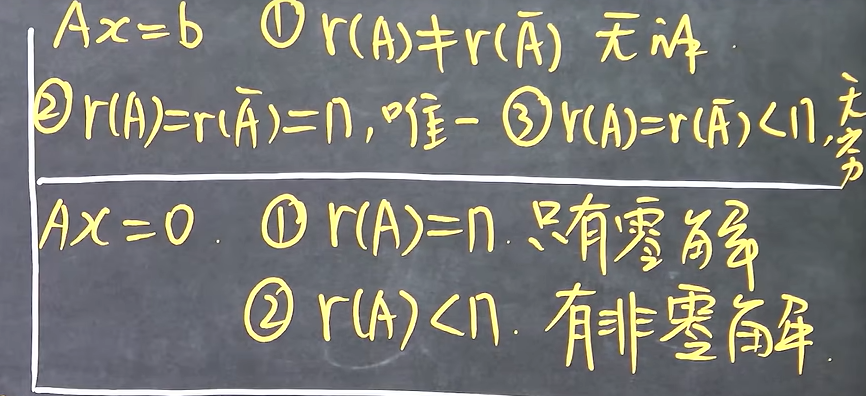 Ax=b ① r(A)≠r(Ā) 无解.
② r(A)=r(Ā)=n,唯一 ③ r(A)=r(Ā)<n,无穷
Ax=0. ① r(A)=n. 只有零解
② r(A)<n. 有非零解.